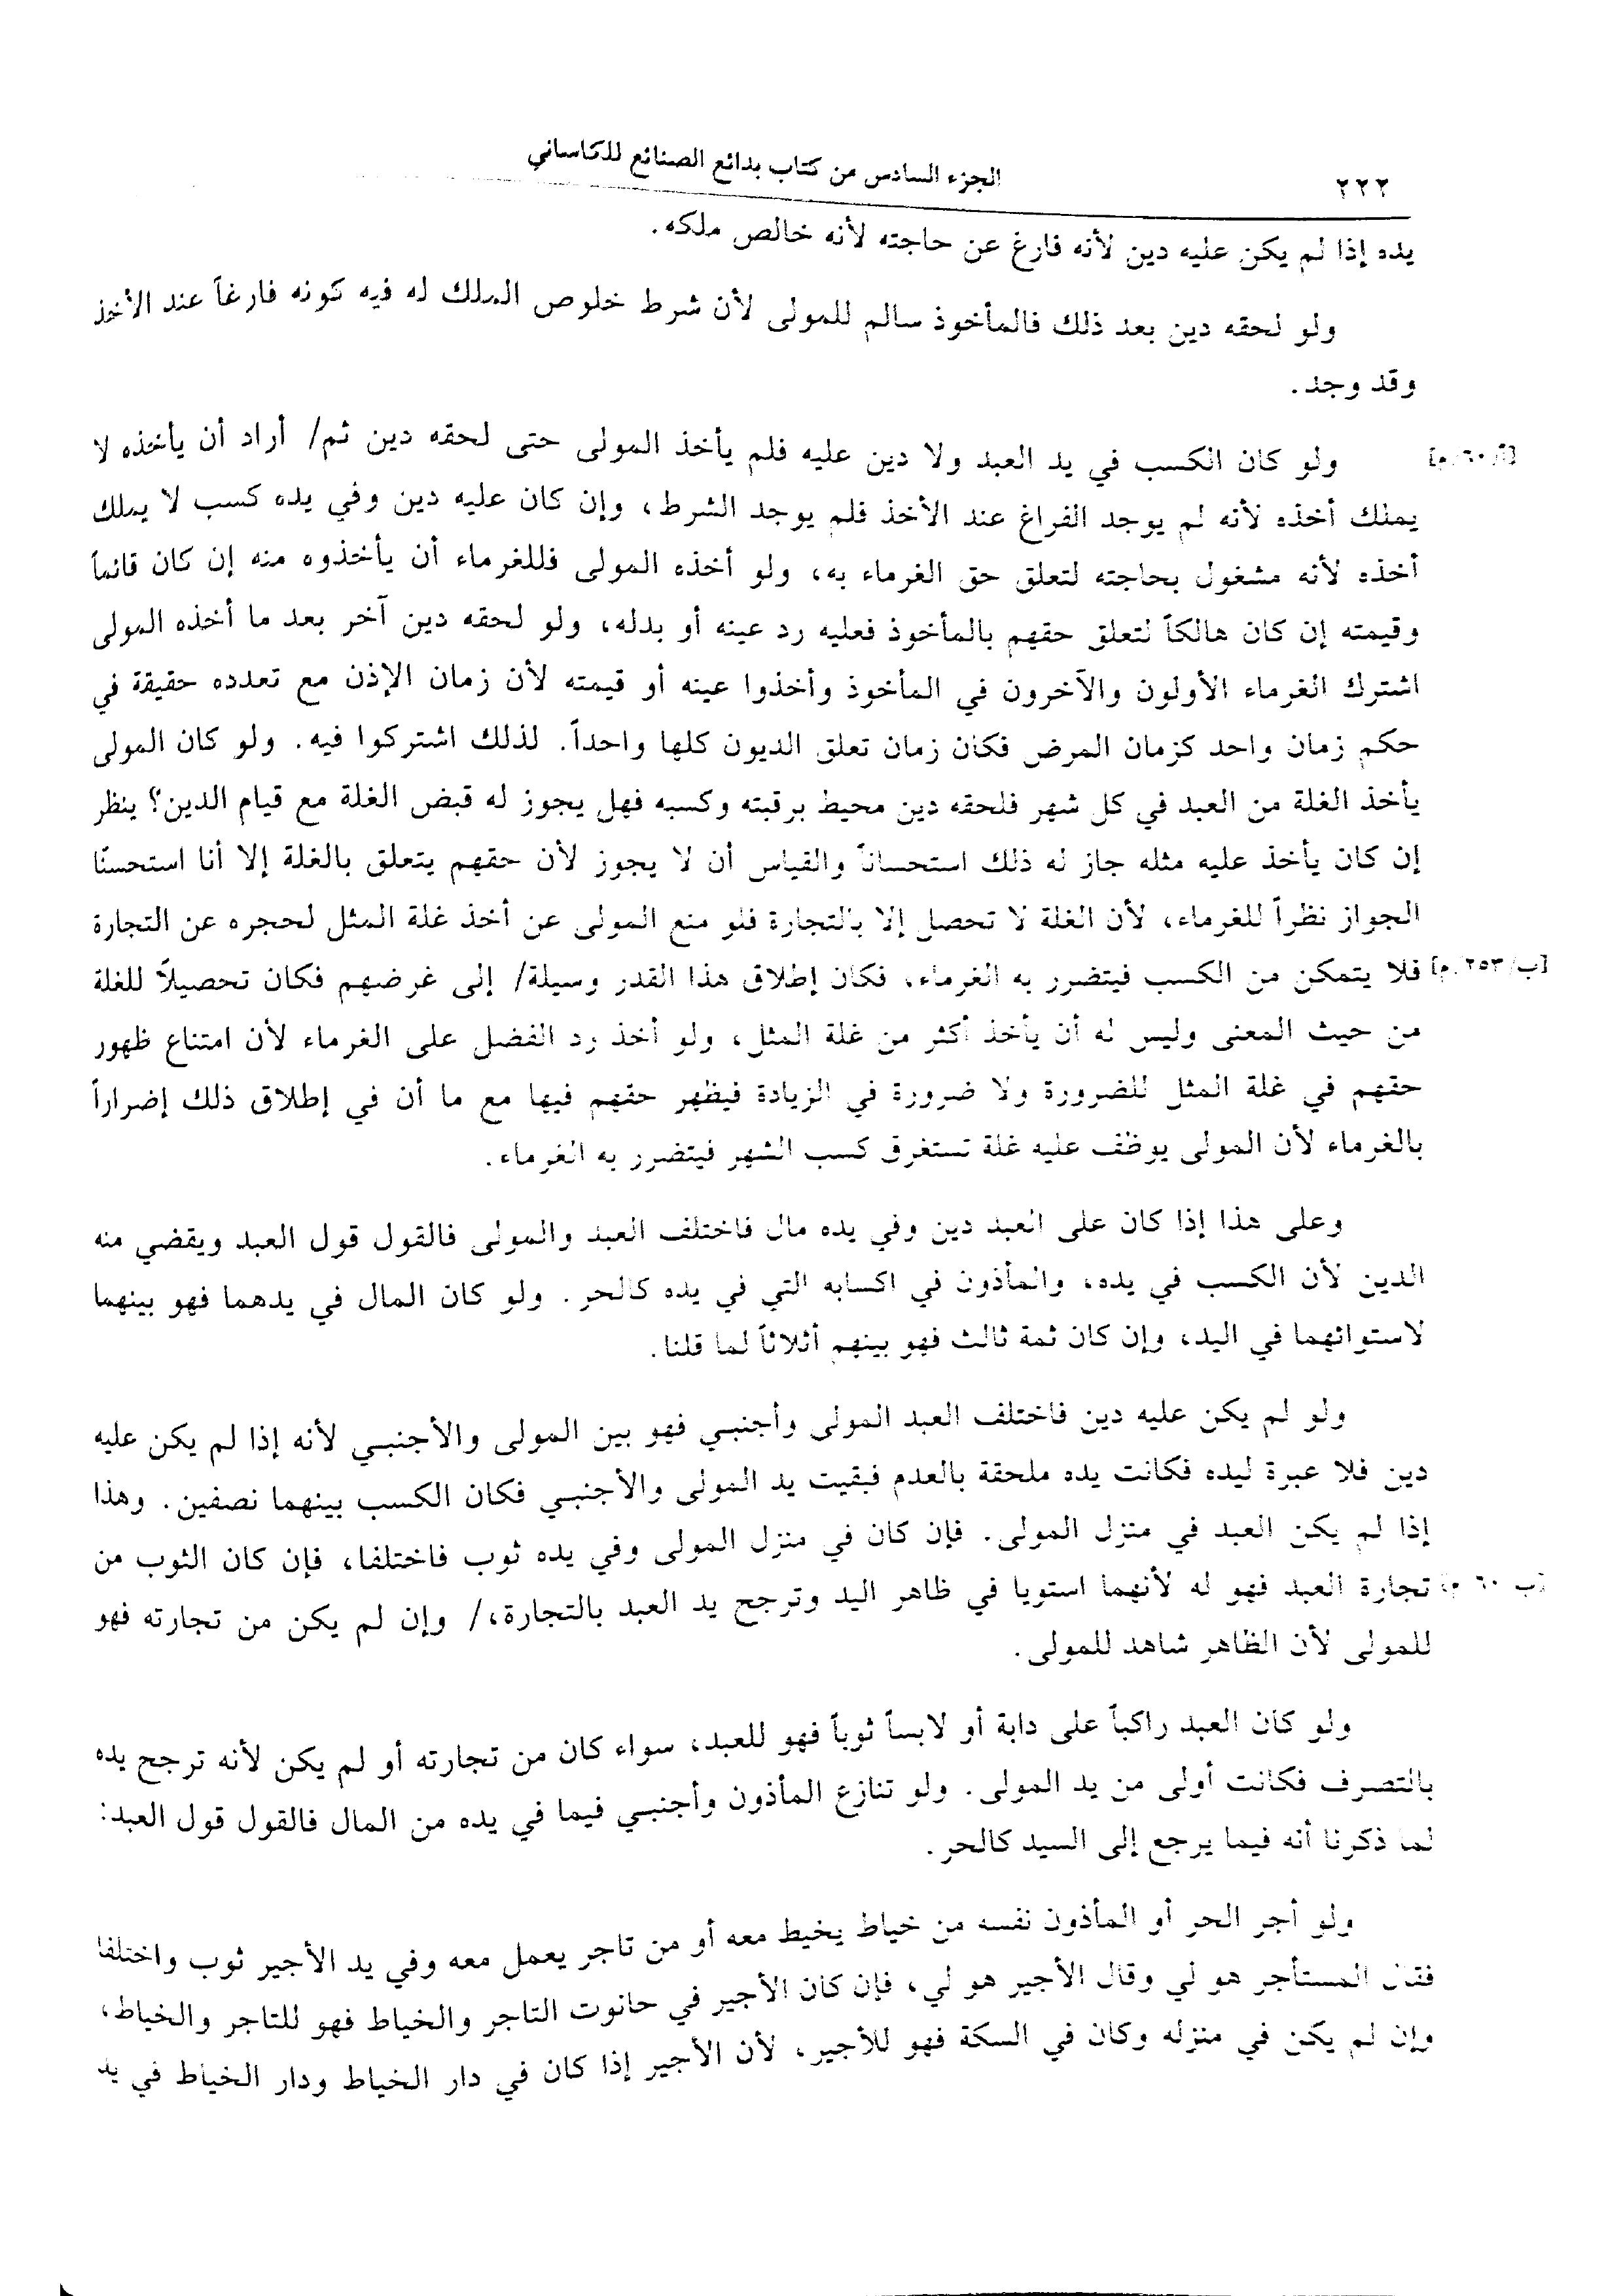 ٢٢٢
الجزء السادس من كتاب بدائع الصنائع للكاساني
يده إذا لم يكن عليه دين لأنه فارغ عن حاجته لأنه خالص ملكه.
ولو لحقه دين بعد ذلك فالمأخوذ سالم للمولى لأن شرط خلوص الملك له فيه كونه فارغاً عند الأخذ
وقد وجد.
[أ/٦٠/م] ولو كان الكسب في يد العبد ولا دين عليه فلم يأخذ المولى حتى لحقه دين ثم/ أراد أن يأخذه لا
يملك أخذه لأنه لم يوجد الفراغ عند الأخذ فلم يوجد الشرط، وإن كان عليه دين وفي يده كسب لا يملك
أخذه لأنه مشغول بحاجته لتعلق حق الغرماء به، ولو أخذه المولى فللغرماء أن يأخذوه منه إن كان قائماً
وقيمته إن كان هالكاً لتعلق حقهم بالمأخوذ فعليه رد عينه أو بدله، ولو لحقه دين آخر بعد ما أخذه المولى
اشترك الغرماء الأولون والآخرون في المأخوذ وأخذوا عينه أو قيمته لأن زمان الإذن مع تعدده حقيقة في
حكم زمان واحد كزمان المرض فكان زمان تعلق الديون كلها واحداً. لذلك اشتركوا فيه. ولو كان المولى
يأخذ الغلة من العبد في كل شهر فلحقه دين محيط برقبته وكسبه فهل يجوز له قبض الغلة مع قيام الدين؟ ينظر
إن كان يأخذ عليه مثله جاز له ذلك استحساناً والقياس أن لا يجوز لأن حقهم يتعلق بالغلة إلا أنا استحسنّا
الجواز نظراً للغرماء، لأن الغلة لا تحصل إلا بالتجارة فلو منع المولى عن أخذ غلة المثل لحجره عن التجارة
[ب/٢٥٣/م] فلا يتمكن من الكسب فيتضرر به الغرماء، فكان إطلاق هذا القدر وسيلة/ إلى غرضهم فكان تحصيلاً للغلة
من حيث المعنى وليس له أن يأخذ أكثر من غلة المثل، ولو أخذ رد الفضل على الغرماء لأن امتناع ظهور
حقهم في غلة المثل للضرورة ولا ضرورة في الزيادة فيظهر حقهم فيها مع ما أن في إطلاق ذلك إضراراً
بالغرماء لأن المولى يوظف عليه غلة تستغرق كسب الشهر فيتضرر به الغرماء.
وعلى هذا إذا كان على العبد دين وفي يده مال فاختلف العبد والمولى فالقول قول العبد ويقضي منه
الدين لأن الكسب في يده، والمأذون في اكسابه التي في يده كالحر. ولو كان المال في يدهما فهو بينهما
لاستوائهما في اليد، وإن كان ثمة ثالث فهو بينهم أثلاثاً لما قلنا.
ولو لم يكن عليه دين فاختلف العبد المولى وأجنبي فهو بين المولى والأجنبي لأنه إذا لم يكن عليه
دين فلا عبرة ليده فكانت يده ملحقة بالعدم فبقيت يد المولى والأجنبي فكان الكسب بينهما نصفين. وهذا
إذا لم يكن العبد في منزل المولى. فإن كان في منزل المولى وفي يده ثوب فاختلفا، فإن كان الثوب من
[ب ٦٠ م] تجارة العبد فهو له لأنهما استويا في ظاهر اليد وترجح يد العبد بالتجارة،/ وإن لم يكن من تجارته فهو
للمولى لأن الظاهر شاهد للمولى.
ولو كان العبد راكباً على دابة أو لابساً ثوباً فهو للعبد، سواء كان من تجارته أو لم يكن لأنه ترجح يده
بالتصرف فكانت أولى من يد المولى. ولو تنازع المأذون وأجنبي فيما في يده من المال فالقول قول العبد:
لما ذكرنا أنه فيما يرجع إلى السيد كالحر.
ولو أجر الحر أو المأذون نفسه من خياط يخيط معه أو من تاجر يعمل معه وفي يد الأجير ثوب واختلفا
فقال المستأجر هو لي وقال الأجير هو لي، فإن كان الأجير في حانوت التاجر والخياط فهو للتاجر والخياط،
وإن لم يكن في منزله وكان في السكة فهو للأجير، لأن الأجير إذا كان في دار الخياط ودار الخياط في يد